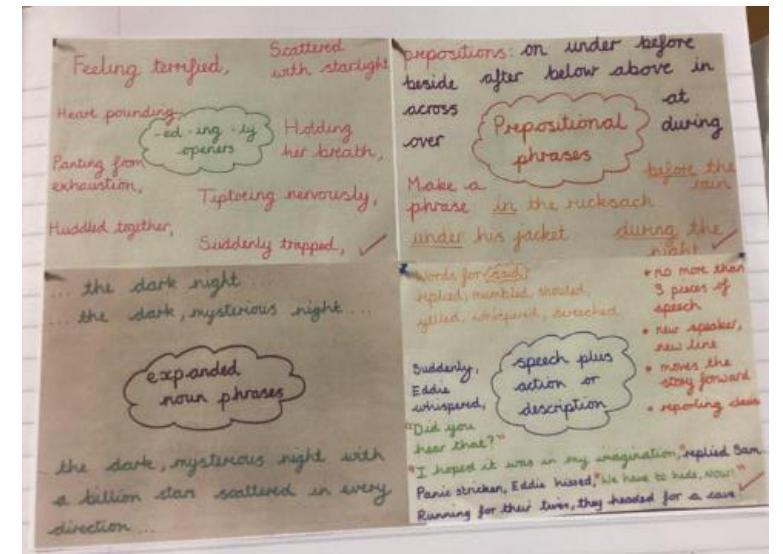 Feeling terrified,
Scattered
with starlight
Heart pounding,
-ed -ing -ly
openers
Holding
her breath,
Panting from
exhaustion,
Tiptoeing nervously,
Huddled together,
Suddenly trapped,
prepositions: on under before
beside after below above in
across
at
over
during
Prepositional
phrases
Make a
phrase
before the
rain
in the rucksack
under his jacket
during the
night
... the dark night ...
... the dark, mysterious night ...
expanded
noun phrases
the dark, mysterious night with
a billion stars scattered in every
direction ...
Words for said
replied, mumbled, shouted,
yelled, whispered, screeched
• no more than
3 pieces of
speech
• new speaker,
new line
• moves the
story forward
• reporting clause
speech plus
action or
description
Suddenly,
Eddie
whispered,
"Did you
hear that?"
"I hoped it was in my imagination," replied Sam.
Panic stricken, Eddie hissed, "We have to hide, NOW!"
Running for their lives, they headed for a cave